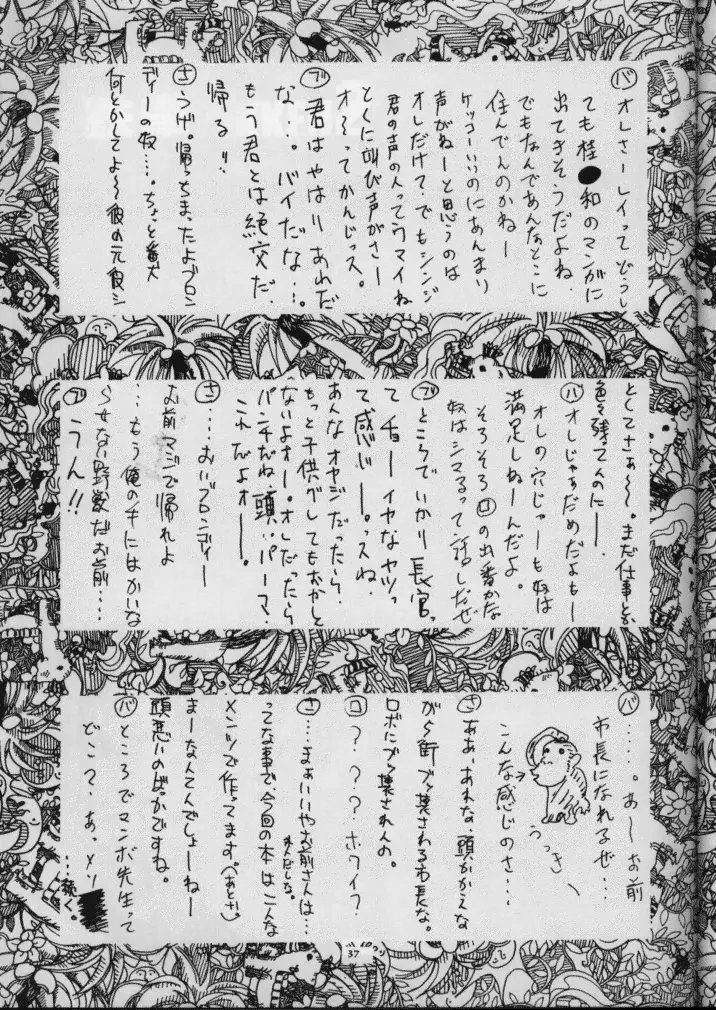 バ オレさーレイってどうし
ても桂●和のマンガに
出てきそうだよね。
でもなんであんなとこに
住んでんのかねー
ケッコーいいのにあんまり
オレだけ?でもシンジ
声がねーと思うのは
君の声の人ってウマイね
とくに叫び声がさー
オーってかんじっス。
ブ 君はやはりあれだ
な…。バイだな…。
もう君とは絶交だ。
帰る!!
さ うげ。帰っちまったよブロン
ディーの奴……。ちょっと番犬
何とかしてよ〜彼の元食シ
としてさぁ〜〜。まだ仕事とか
色々残ってんのにー。
バ オレじゃぁだめだよもー
オレの穴じゃーも奴は
満足しねーんだよ。
そろそろロの出番かな
奴はシマるって話しだぜ
ブ ところでいかり長官っ
てチョーイヤなヤツっ
て感じー。っスね。
あんなオヤジだったら、
もっと子供グレてもおかしと
ないよオー。オレだったら
パンチだね、頭…パーマ。
これだよオー。
さ ‥‥おいブロンディー
お前マジで帰れよ
…もう俺の手にはかいな
らせない野獣だお前‥‥
ブ うん!!
バ ‥‥。あーお前
市長になれるぜ…
こんな感じのさ…
うっきー
さ ああ、あれな、頭かかえな
がら街ブッ壊される市長な。
ロボにブッ壊されんの。
ロ ???ホワイ?
さ ‥‥まぁいいやお前さんは…
ってな事で、今回の本はこんな
メンツで作ってます。(あとさ。)
まーなんてんでしょーねー
頭悪いのばっかですね。
バ ところでマンボ先生って
どこ?、あ、メリ
…続く。
37